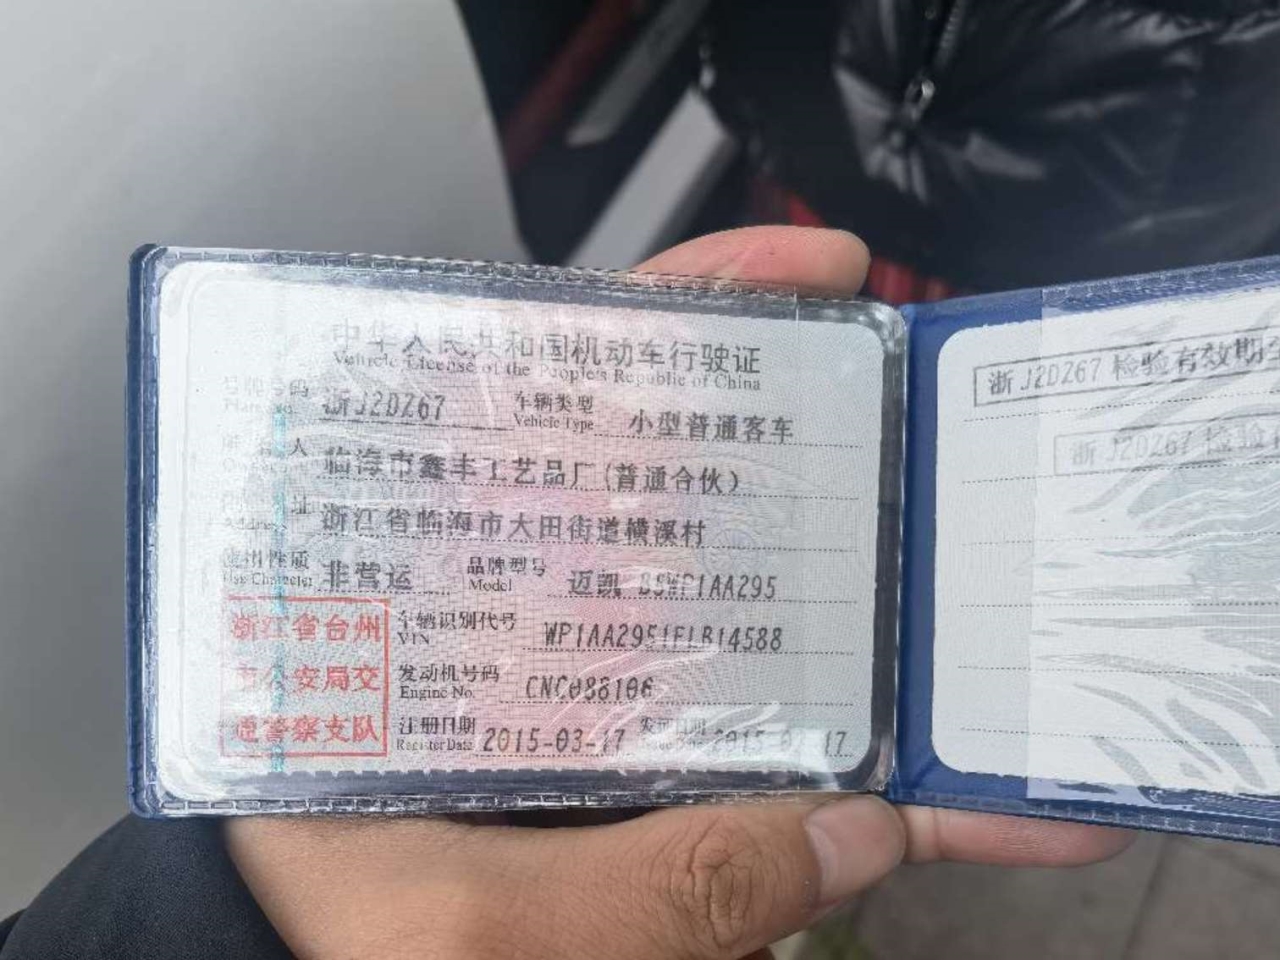 中华人民共和国机动车行驶证
Vehicle License of the People's Republic of China
号牌号码 浙J2DZ67 车辆类型 小型普通客车
Plate No. Vehicle Type
所有人 临海市鑫丰工艺品厂(普通合伙)
Owner
住址 浙江省临海市大田街道横溪村
Address
使用性质 非营运 品牌型号 迈凯 BSWP1AA295
Use Character Model
浙江省台州 车辆识别代号 WP1AA2951FLB14588
VIN
市公安局交 发动机号码 CNC088106
Engine No.
通警察支队 注册日期 2015-03-17 发证日期 2015 17
Register Date Issue Date
浙J2DZ67 检验有效期至
浙J2DZ67 检验